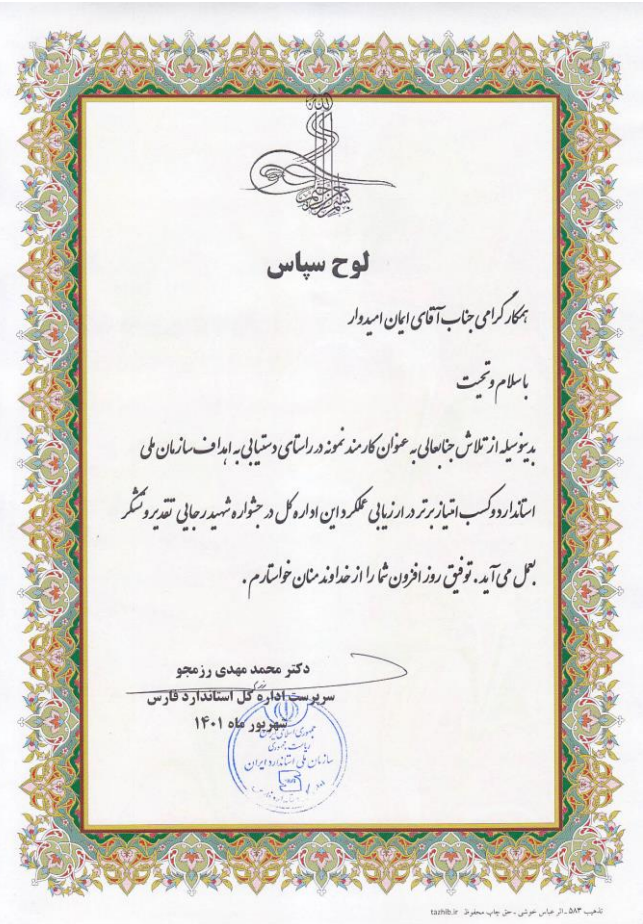 بسم الله الرحمن الرحیم
لوح سپاس
همکار گرامی جناب آقای ایمان امیدوار
باسلام و تحیت
بدینوسیله از تلاش جنابعالی به عنوان کارمند نمونه در راستای دستیابی به اهداف سازمان ملی
استاندارد و کسب امتیاز برتر در ارزیابی عملکرد این اداره کل در جشنواره شهید رجایی تقدیر و تشکر
بعمل می آید. توفیق روز افزون شما را از خداوند منان خواستارم.
دکتر محمد مهدی رزمجو
سرپرست اداره کل استاندارد فارس
شهریور ماه ۱۴۰۱
جمهوری اسلامی ایران
ریاست جمهوری
سازمان ملی استاندارد ایران
تذهیب ۵۸۳ ـ اثر عباس خوشی ـ حق چاپ محفوظ tazhib.ir